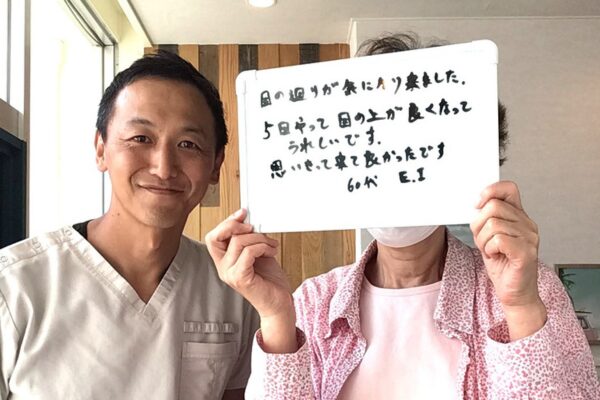 目の廻りが気になり来ました。
5回やって目の上が良くなって
うれしいです。
思いきって来て良かったです
60代 E.I